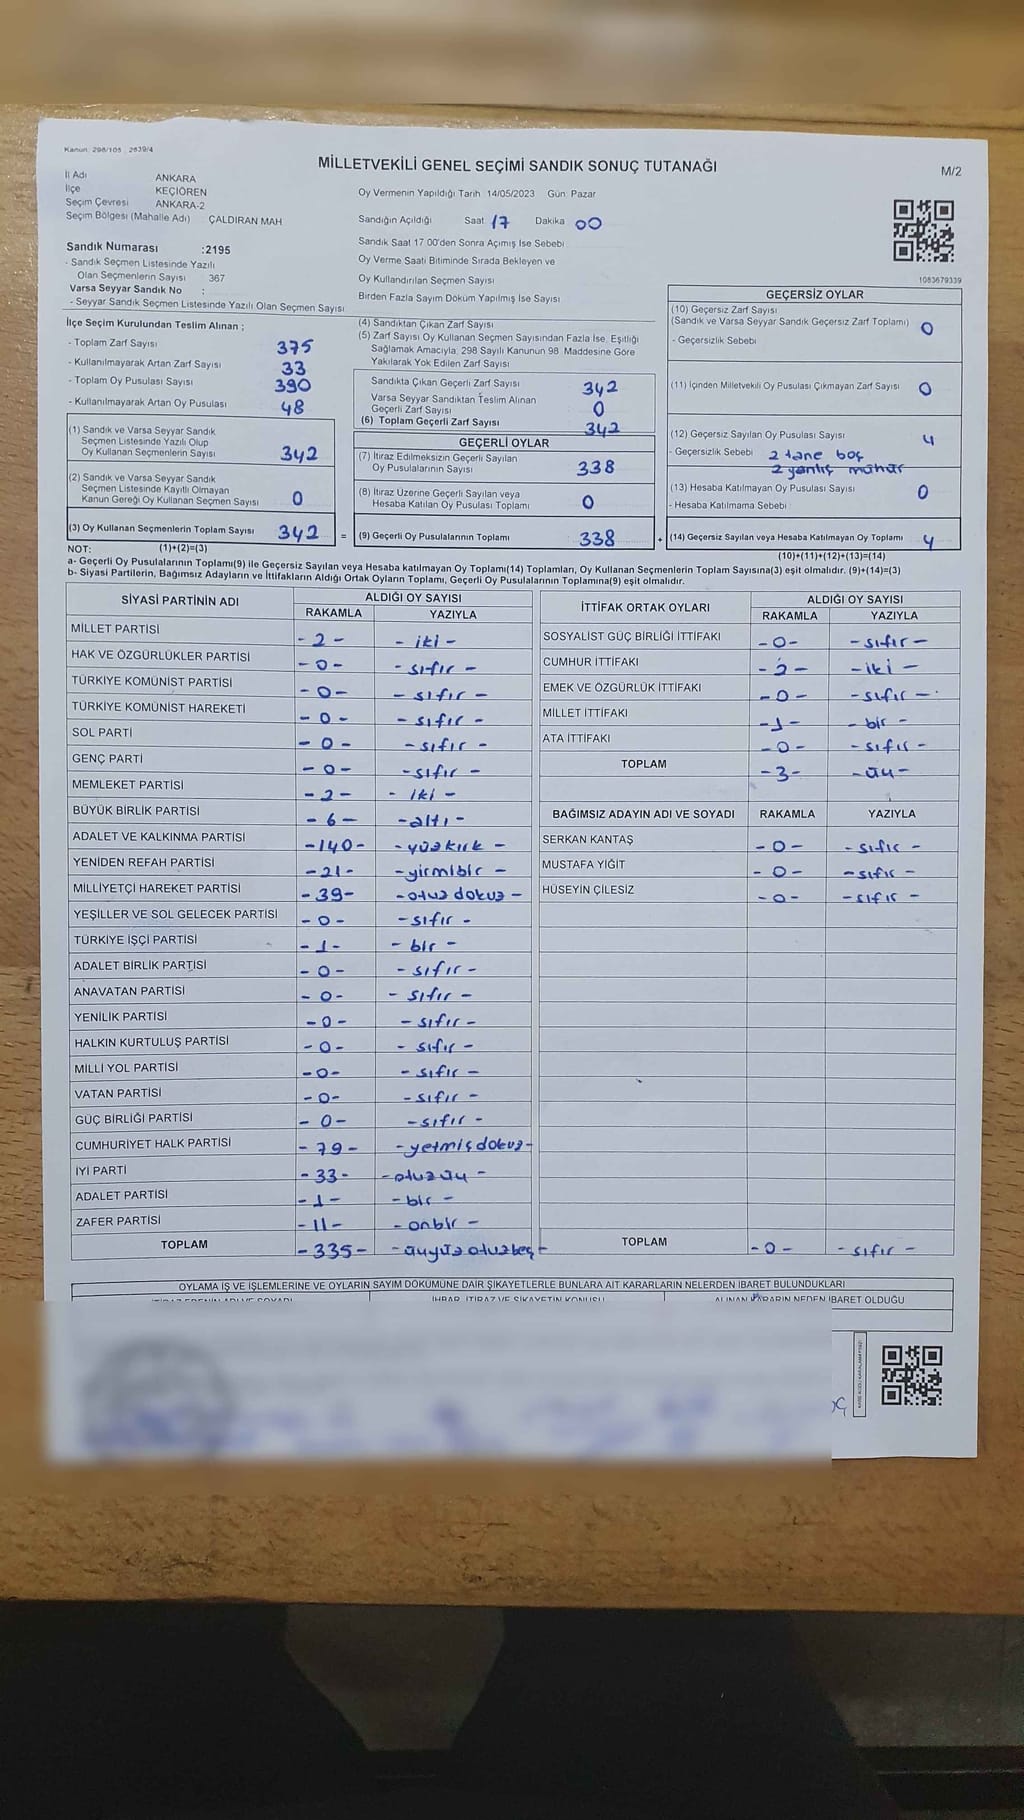 Kanun: 298/105 . 2839/4
MİLLETVEKİLİ GENEL SEÇİMİ SANDIK SONUÇ TUTANAĞI
M/2
İl Adı ANKARA
İlçe KEÇİÖREN
Seçim Çevresi ANKARA-2
Seçim Bölgesi (Mahalle Adı) : ÇALDIRAN MAH
Sandık Numarası :2195
- Sandık Seçmen Listesinde Yazılı
Olan Seçmenlerin Sayısı 367
Varsa Seyyar Sandık No :
- Seyyar Sandık Seçmen Listesinde Yazılı Olan Seçmen Sayısı
Oy Vermenin Yapıldığı Tarih 14/05/2023 Gün Pazar
Sandığın Açıldığı Saat 17 Dakika 00
Sandık Saat 17 00'den Sonra Açımış İse Sebebi
Oy Verme Saati Bitiminde Sırada Bekleyen ve
Oy Kullandırılan Seçmen Sayısı
Birden Fazla Sayım Döküm Yapılmış İse Sayısı
1083679339
İlçe Seçim Kurulundan Teslim Alınan ;
- Toplam Zarf Sayısı 375
- Kullanılmayarak Artan Zarf Sayısı 33
- Toplam Oy Pusulası Sayısı 390
- Kullanılmayarak Artan Oy Pusulası 48
(1) Sandık ve Varsa Seyyar Sandık
Seçmen Listesinde Yazılı Olup
Oy Kullanan Seçmenlerin Sayısı 342
(2) Sandık ve Varsa Seyyar Sandık
Seçmen Listesinde Kayıtlı Olmayan
Kanun Gereği Oy Kullanan Seçmen Sayısı 0
(3) Oy Kullanan Seçmenlerin Toplam Sayısı 342 =
(4) Sandıktan Çıkan Zarf Sayısı
(5) Zarf Sayısı Oy Kullanan Seçmen Sayısından Fazla İse, Eşitliği
Sağlamak Amacıyla; 298 Sayılı Kanunun 98 Maddesine Göre
Yakılarak Yok Edilen Zarf Sayısı
Sandıkta Çıkan Geçerli Zarf Sayısı 342
Varsa Seyyar Sandıktan Teslim Alınan
Geçerli Zarf Sayısı 0
(6) Toplam Geçerli Zarf Sayısı 342
GEÇERLİ OYLAR
(7) İtiraz Edilmeksizin Geçerli Sayılan
Oy Pusulalarının Sayısı 338
(8) İtiraz Üzerine Geçerli Sayılan veya
Hesaba Katılan Oy Pusulası Toplamı 0
(9) Geçerli Oy Pusulalarının Toplamı 338 +
GEÇERSİZ OYLAR
(10) Geçersiz Zarf Sayısı
(Sandık ve Varsa Seyyar Sandık Geçersiz Zarf Toplamı) 0
- Geçersizlik Sebebi
(11) İçinden Milletvekili Oy Pusulası Çıkmayan Zarf Sayısı 0
(12) Geçersiz Sayılan Oy Pusulası Sayısı 4
- Geçersizlik Sebebi 2 tane boş
2 yanlış mühür
(13) Hesaba Katılmayan Oy Pusulası Sayısı 0
- Hesaba Katılmama Sebebi
(14) Geçersiz Sayılan veya Hesaba Katılmayan Oy Toplamı 4
NOT: (1)+(2)=(3)
(10)+(11)+(12)+(13)=(14)
a- Geçerli Oy Pusulalarının Toplamı(9) ile Geçersiz Sayılan veya Hesaba katılmayan Oy Toplamı(14) Toplamları, Oy Kullanan Seçmenlerin Toplam Sayısına(3) eşit olmalıdır. (9)+(14)=(3)
b- Siyasi Partilerin, Bağımsız Adayların ve İttifakların Aldığı Ortak Oyların Toplamı, Geçerli Oy Pusulalarının Toplamına(9) eşit olmalıdır.
SİYASİ PARTİNİN ADI
ALDIĞI OY SAYISI
RAKAMLA YAZIYLA
MİLLET PARTİSİ - 2 - - iki -
HAK VE ÖZGÜRLÜKLER PARTİSİ - 0 - - sıfır -
TÜRKİYE KOMÜNİST PARTİSİ - 0 - - sıfır -
TÜRKİYE KOMÜNİST HAREKETİ - 0 - - sıfır -
SOL PARTİ - 0 - - sıfır -
GENÇ PARTİ - 0 - - sıfır -
MEMLEKET PARTİSİ - 2 - - iki -
BÜYÜK BİRLİK PARTİSİ - 6 - - altı -
ADALET VE KALKINMA PARTİSİ - 140 - - yüzkırk -
YENİDEN REFAH PARTİSİ - 21 - - yirmibir -
MİLLİYETÇİ HAREKET PARTİSİ - 39 - - otuzdokuz -
YEŞİLLER VE SOL GELECEK PARTİSİ - 0 - - sıfır -
TÜRKİYE İŞÇİ PARTİSİ - 1 - - bir -
ADALET BİRLİK PARTİSİ - 0 - - sıfır -
ANAVATAN PARTİSİ - 0 - - sıfır -
YENİLİK PARTİSİ - 0 - - sıfır -
HALKIN KURTULUŞ PARTİSİ - 0 - - sıfır -
MİLLİ YOL PARTİSİ - 0 - - sıfır -
VATAN PARTİSİ - 0 - - sıfır -
GÜÇ BİRLİĞİ PARTİSİ - 0 - - sıfır -
CUMHURİYET HALK PARTİSİ - 79 - - yetmişdokuz -
İYİ PARTİ - 33 - - otuzüç -
ADALET PARTİSİ - 1 - - bir -
ZAFER PARTİSİ - 11 - - onbir -
TOPLAM - 335 - - üçyüzotuzbeş -
İTTİFAK ORTAK OYLARI
ALDIĞI OY SAYISI
RAKAMLA YAZIYLA
SOSYALİST GÜÇ BİRLİĞİ İTTİFAKI - 0 - - sıfır -
CUMHUR İTTİFAKI - 2 - - iki -
EMEK VE ÖZGÜRLÜK İTTİFAKI - 0 - - sıfır -
MİLLET İTTİFAKI - 1 - - bir -
ATA İTTİFAKI - 0 - - sıfır -
TOPLAM - 3 - - üç -
BAĞIMSIZ ADAYIN ADI VE SOYADI RAKAMLA YAZIYLA
SERKAN KANTAŞ - 0 - - sıfır -
MUSTAFA YİĞİT - 0 - - sıfır -
HÜSEYİN ÇİLESİZ - 0 - - sıfır -
TOPLAM - 0 - - sıfır -
OYLAMA İŞ VE İŞLEMLERİNE VE OYLARIN SAYIM DÖKÜMÜNE DAİR ŞİKAYETLERLE BUNLARA AİT KARARLARIN NELERDEN İBARET BULUNDUKLARI
İTİRAZ EDENİN ADI VE SOYADI İHBAR, İTİRAZ VE ŞİKAYETİN KONUSU ALINAN KARARIN NEDEN İBARET OLDUĞU